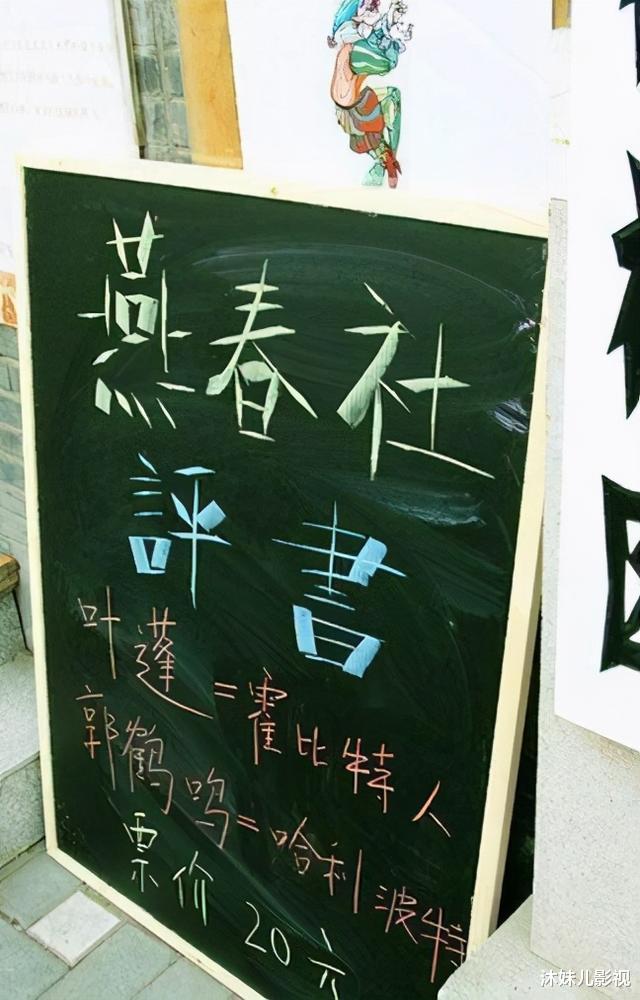 燕春社
評書
叶蓬=霍比特人
郭鹤鸣=哈利波特
票价20元
沐妹儿影视